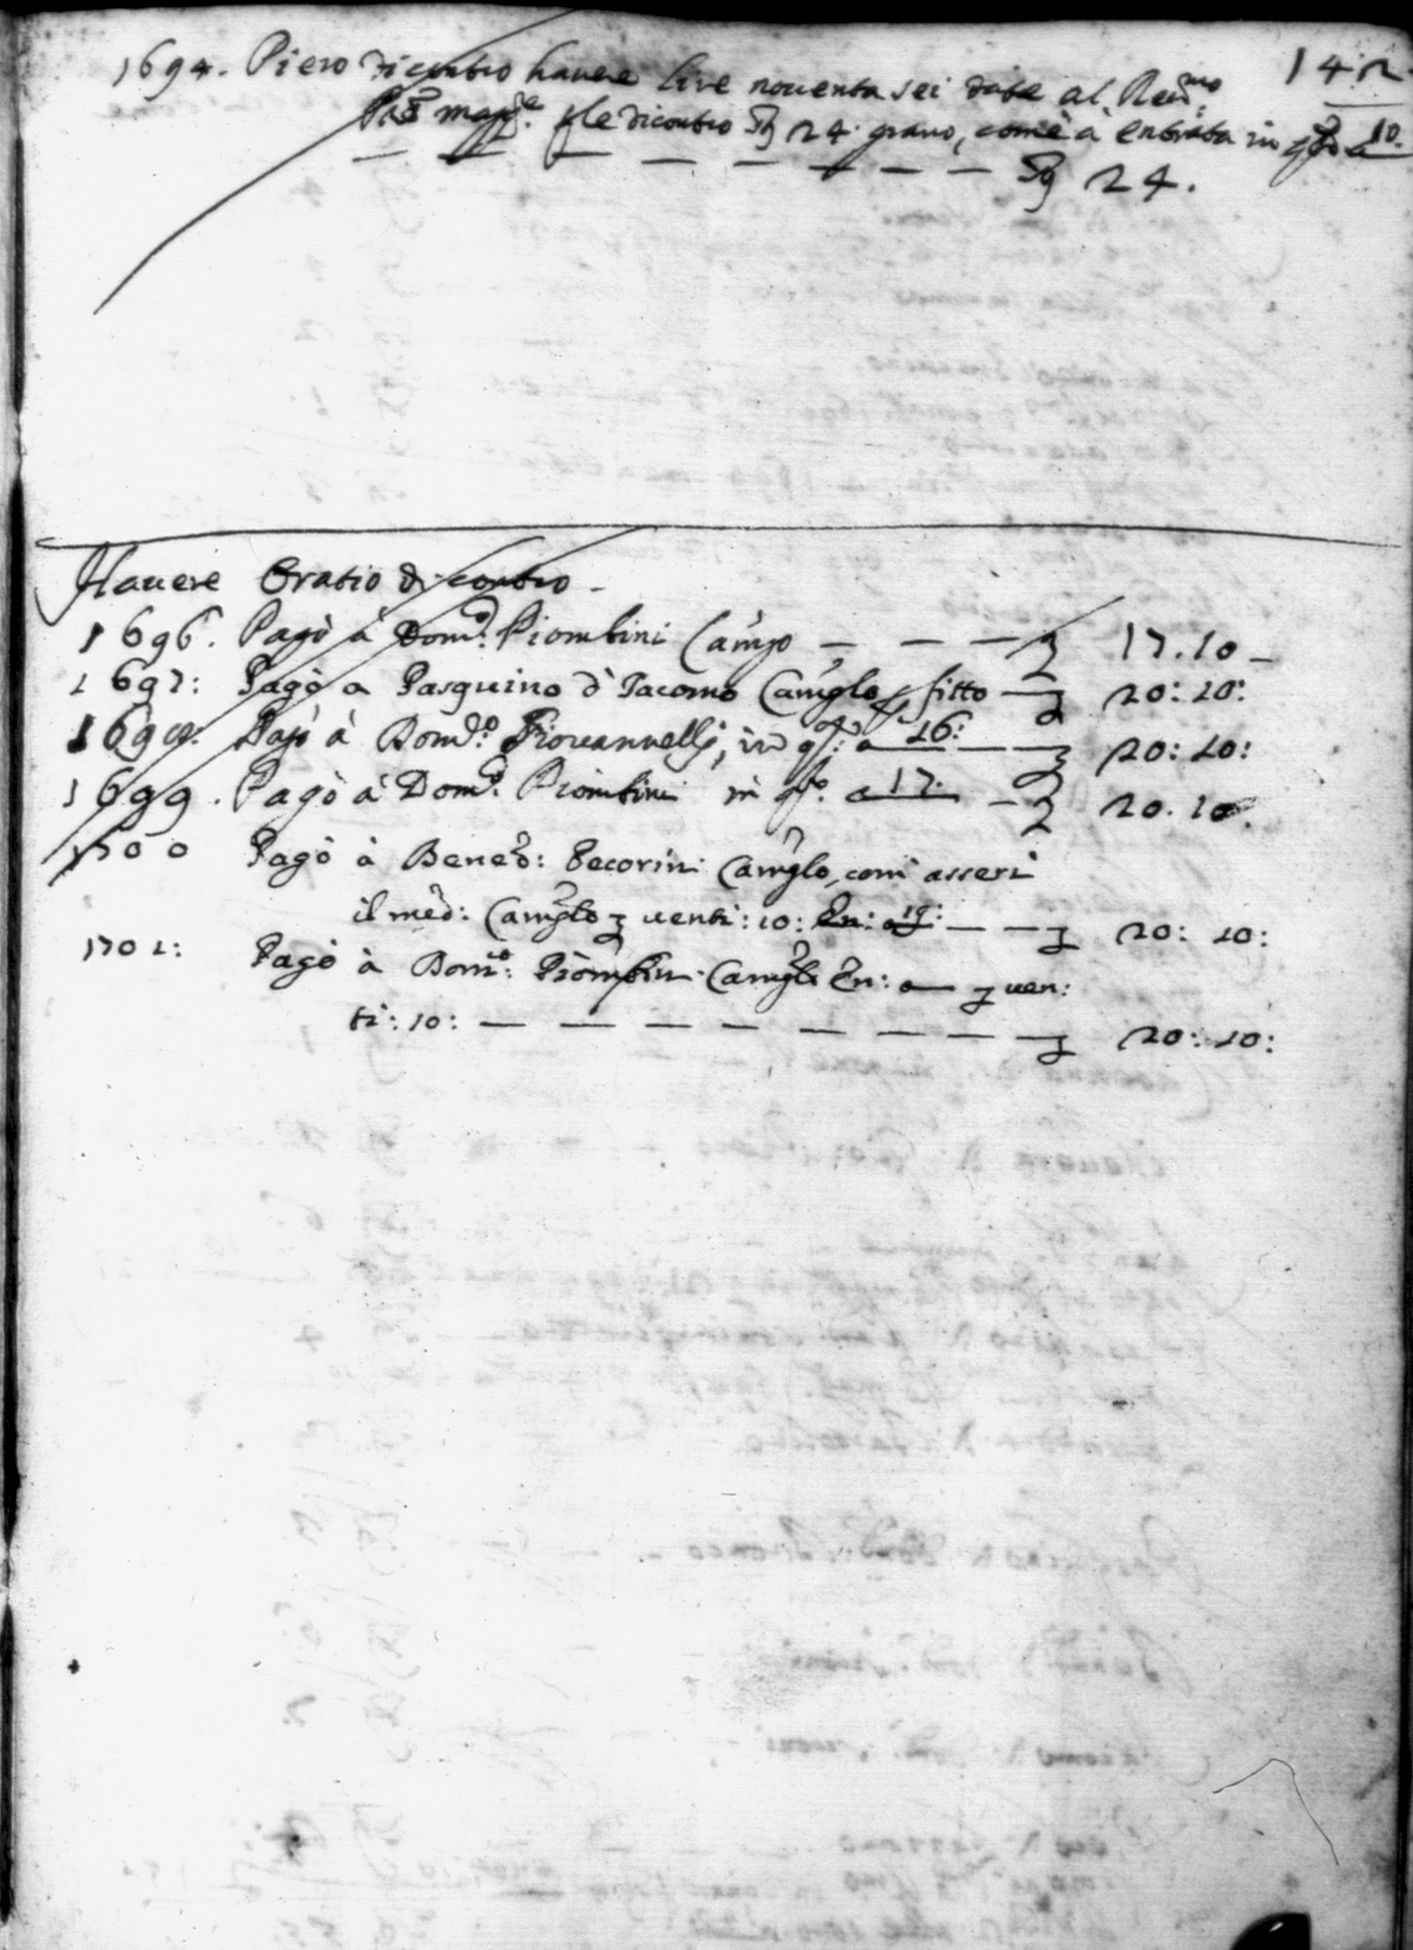 142
1694. Piero di contro havere lire novanta sei date al Reu.mo
Pre mag.re p le dicontro Sg 24 grano, come à entrata in qto a 10.
Sg 24.
Havere Oratio di contro
1696. Pagò à Dom.co Piombini Camgo 17.10
1697: Pagò a Pasquino d' Jacomo Camglo p fitto 20: 10:
1698. Pagò à Dom.co Giovannelli, in qto: a 16: 20: 10:
1699. Pagò à Dom.co Piombini in qto. a 17. 20. 10.
1700 Pagò à Bened: Pecorini Camglo, com' asserì
il med: Camglo venti: 10: En: a 19: 20: 10:
1701: Pagò à Dom.co: Piombin Camglo En: a ven:
ti: 10: 20: 10: